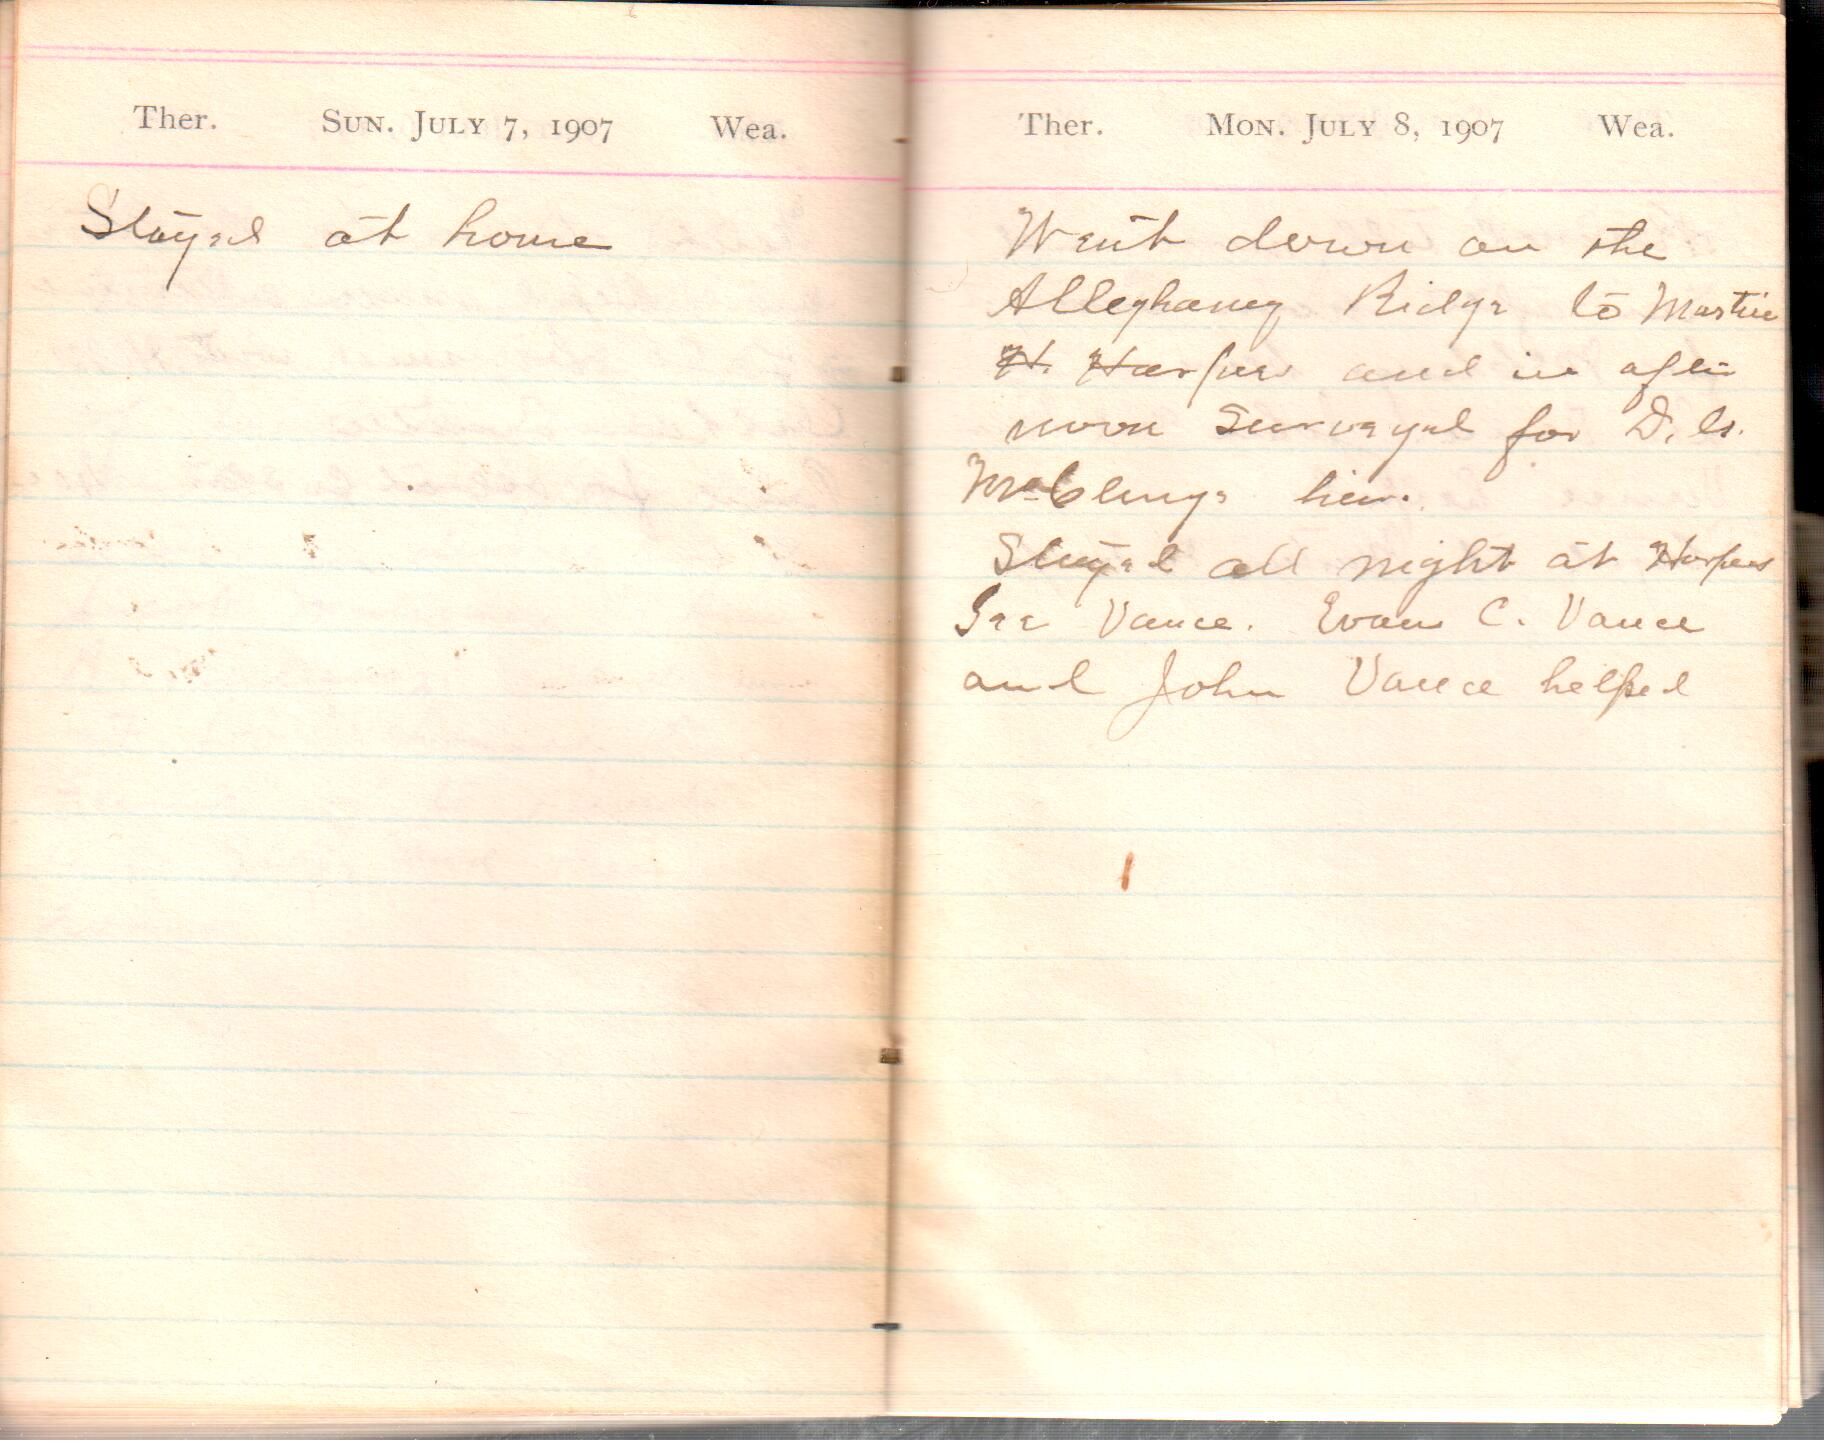 Ther. SUN. JULY 7, 1907 Wea.
Stayed at home
Ther. MON. JULY 8, 1907 Wea.
Went down on the
Alleghaney Ridge to Martin
H. Harper and in after
noon Surveyed for D. G.
McClung
Stayed all night at Harpers
Vance. Evan C. Vance
and John Vance helped